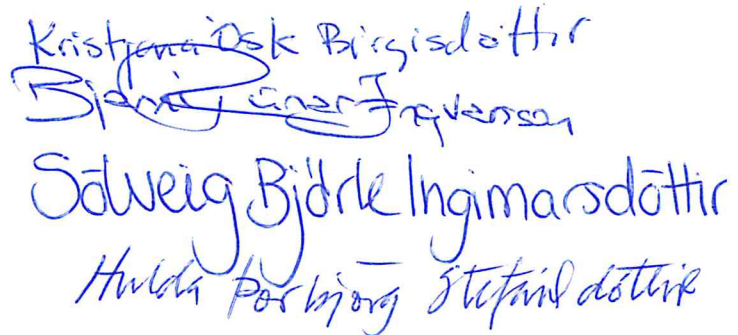 Kristjana Ósk Birgisdóttir
Bjarni Rúnar Ingvarsson
Sólveig Björk Ingimarsdóttir
Hulda Þorbjörg Stefánsdóttir